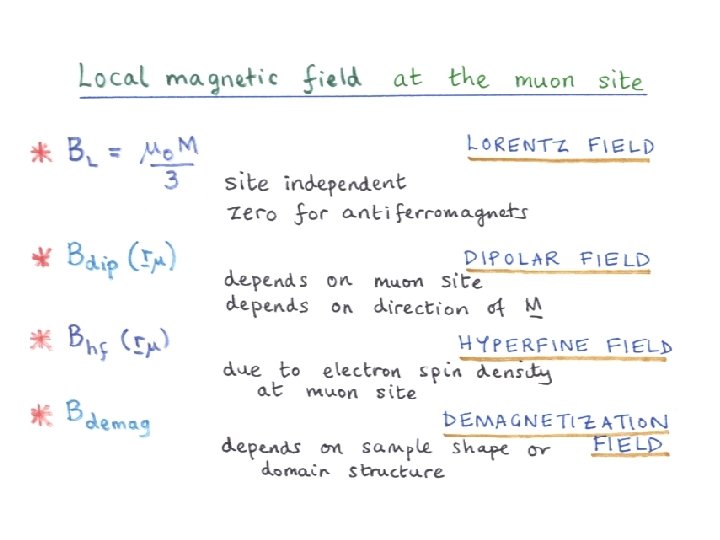 Local magnetic field at the muon site
* B_L = μ₀M/3 LORENTZ FIELD
site independent
zero for antiferromagnets
* B_dip (r_μ) DIPOLAR FIELD
depends on muon site
depends on direction of M
* B_hf (r_μ) HYPERFINE FIELD
due to electron spin density
at muon site
* B_demag DEMAGNETIZATION
FIELD
depends on sample shape or
domain structure